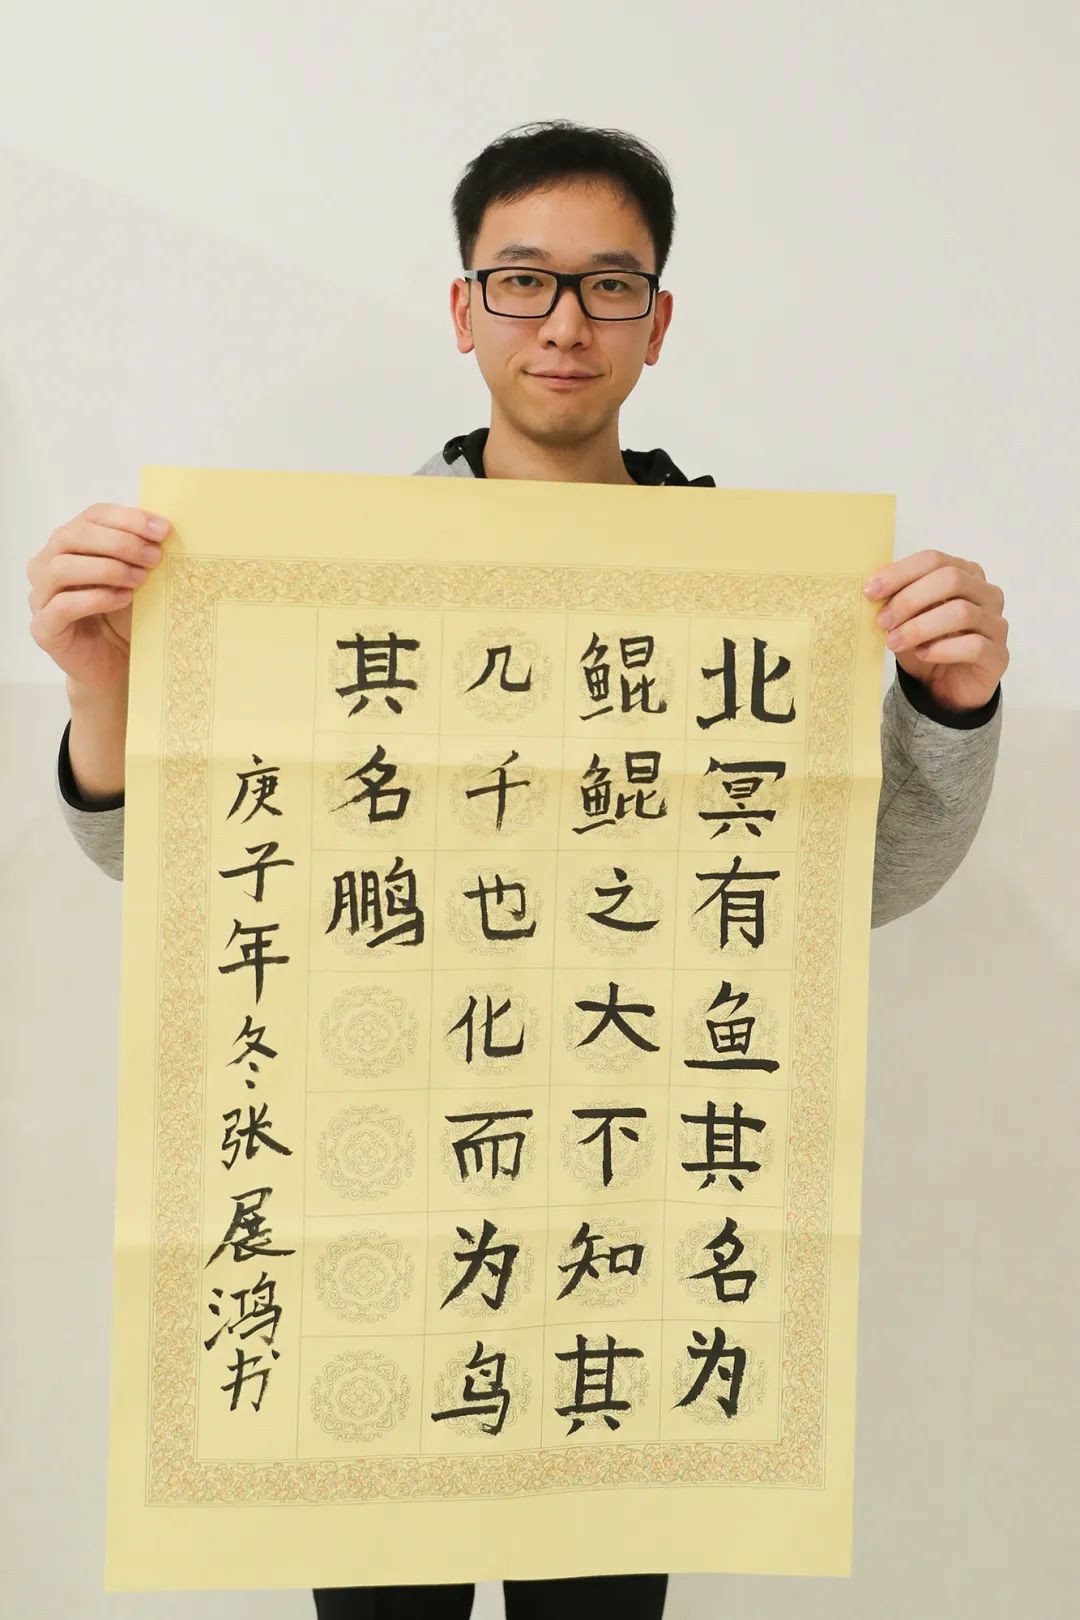 北冥有鱼其名为
鲲鲲之大不知其
几千也化而为鸟
其名鹏
庚子年冬张展鸿书